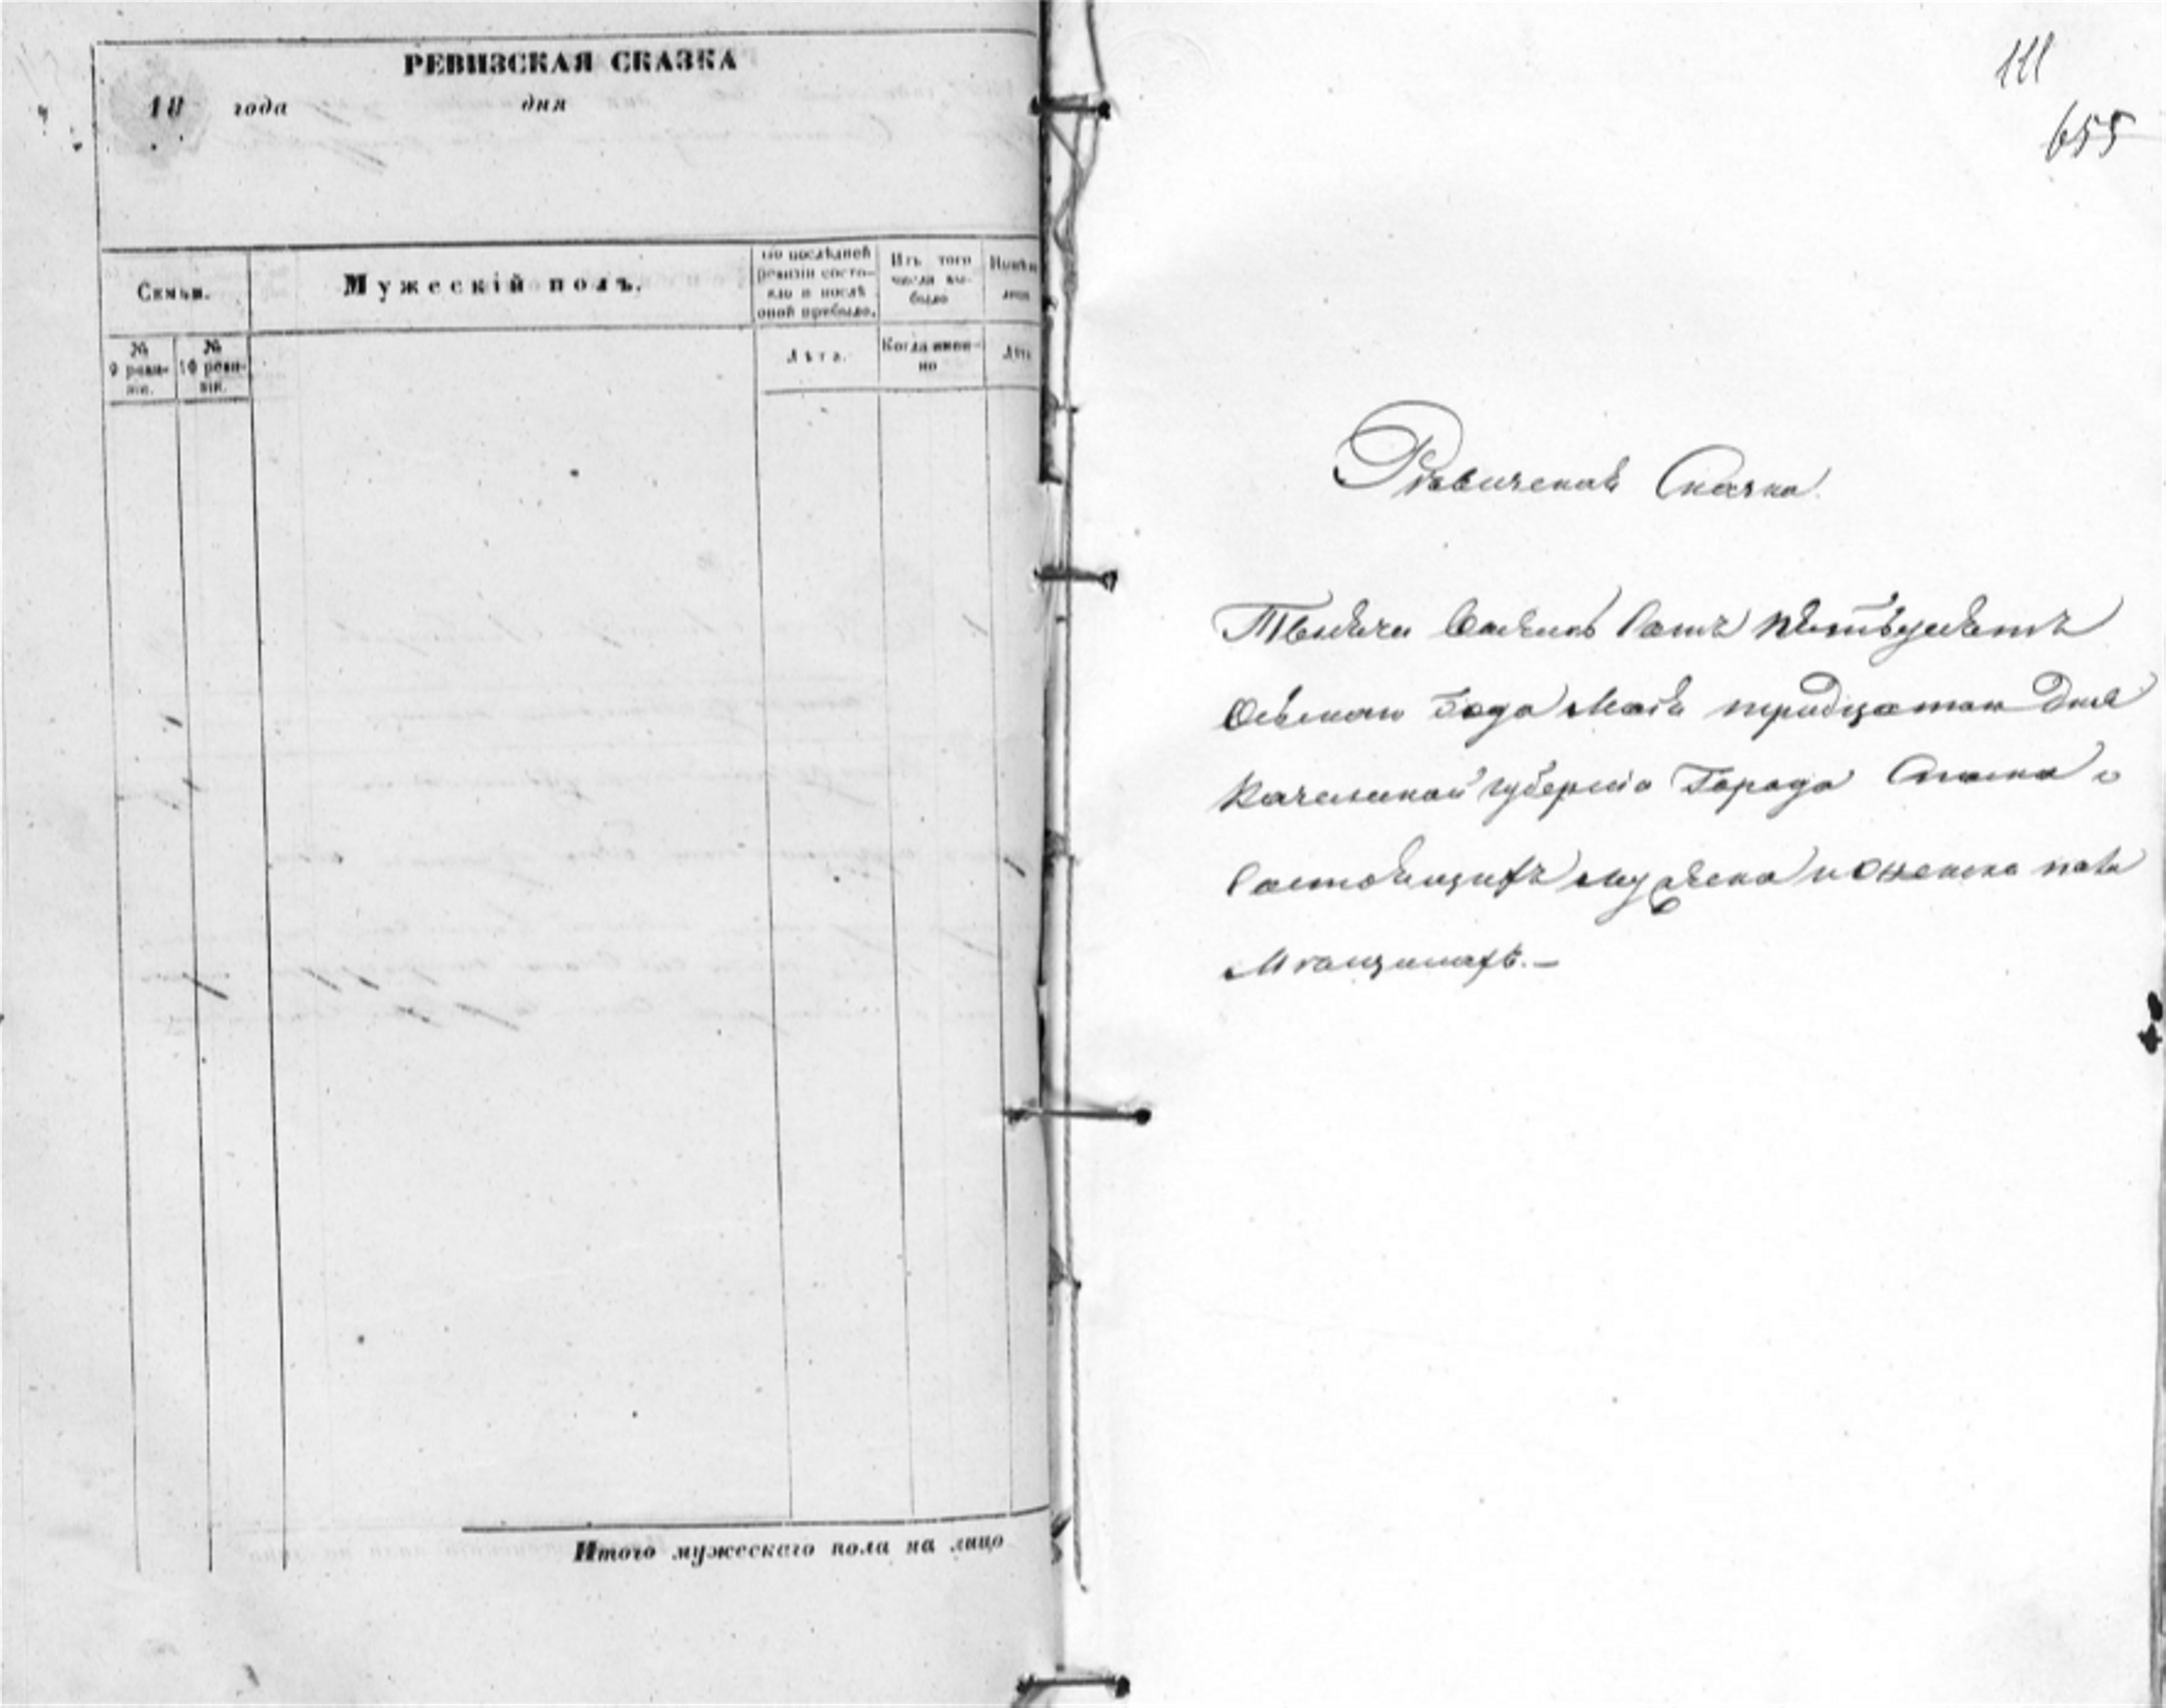 РЕВИЗСКАЯ СКАЗКА
18 года дня
Семьи.
Мужескій полъ.
по послѣдней ревизіи состо-
яло и послѣ
оной прибыло.
Изъ того
числа вы-
было
Нынѣ
лицо
№
9 реви-
зіи.
№
10 реви-
зіи.
Лѣта.
Когда имен-
но
Лѣта
Итого мужескаго пола на лицо
111
655
Ревизская Сказка
Тысяча Восемь Сотъ пятьдесятъ
Осьмаго Года Маія тридцатаго Дня
Казанской губерніи Города Спаска о
Состоящихъ мужеска и женска пола
Мѣщанахъ.—